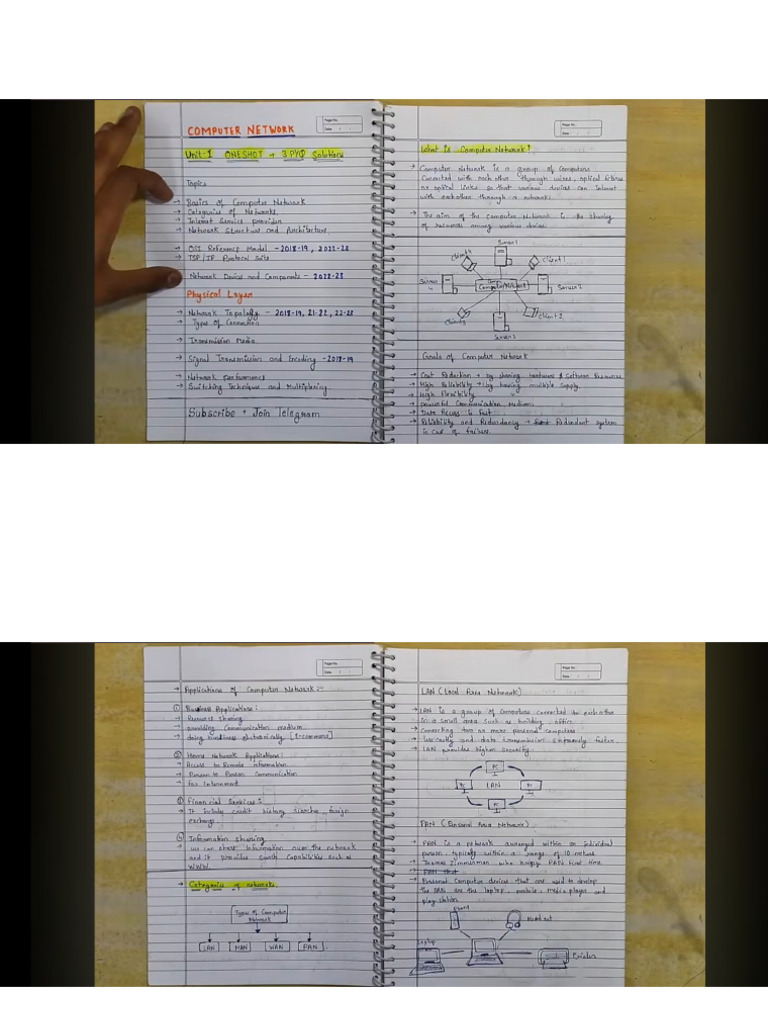 COMPUTER NETWORK
Page No.
Date
Unit-1 ONESHOT + 3 PYQ Solution
Topics
→ Basics of Computer Network
→ Categories of Networks
→ Internet Service provider
→ Network Structure and Architecture.
→ OSI Reference Model - 2018-19, 2022-23
→ TSP/IP Protocol Suite
→ Network Devices and Components - 2022-23
Physical Layer
→ Network Topology - 2018-19, 21-22, 22-23
→ Types of Connection
→ Transmission Media
→ Signal Transmission and Encoding - 2018-19
→ Network performance
→ Switching Technique and Multiplexing
Subscribe + Join Telegram
Page No.
Date
What is Computer Network?
→ Computer Network is a group of Computers
Connected with each other through wires, optical fibres
or optical links so that various devices can interact
with each other through a network.
→ The aim of the computer Network is the sharing
of resources among various devices.
Server 1
Client 4
Client 1
Server
4
Computer Network
Server 2
Client 2
Server 3
Goals of Computer Network
→ Cost Reduction → by sharing hardware & Software Resources
→ High Reliability → by having multiple supply.
→ High Flexibility
→ powerful Communication Medium
→ Data Access is Fast
→ Reliability and Redundancy → Redundant system
in case of failure.
Page No.
Date
→ Applications of Computer Network :-
① Business Applications :
→ Resource sharing
→ providing Communication medium
→ doing business electronically [E-commerce]
② Home Network Applications :
→ Access to Remote information
→ Person to Person Communication
→ for Entertainment
③ Financial Services :
→ It includes credit history searches, foreign
exchange
④ Information sharing
→ we can share information over the network
and it provides search capabilities such as
WWW.
→ Categories of networks.
Types of Computer
Network
LAN MAN WAN PAN
Page No.
Date
LAN (Local Area Network)
→ LAN is a group of computers connected to each other
in a small area such as building, office.
→ Connecting two or more personal computers
→ low costly and data transmission extremely faster.
→ LAN provides higher security.
PC
PC LAN PC
PC
PAN (Personal Area Network)
→ PAN is a network arranged within an individual
person, typically within a range of 10 meters
→ Thomas Zimmerman who bring PAN first time.
→ PAN that
→ Personal Computer devices that are used to develop
the PAN are the laptop, mobile, media player and
play station
Phone
Head set
Laptop
Printer